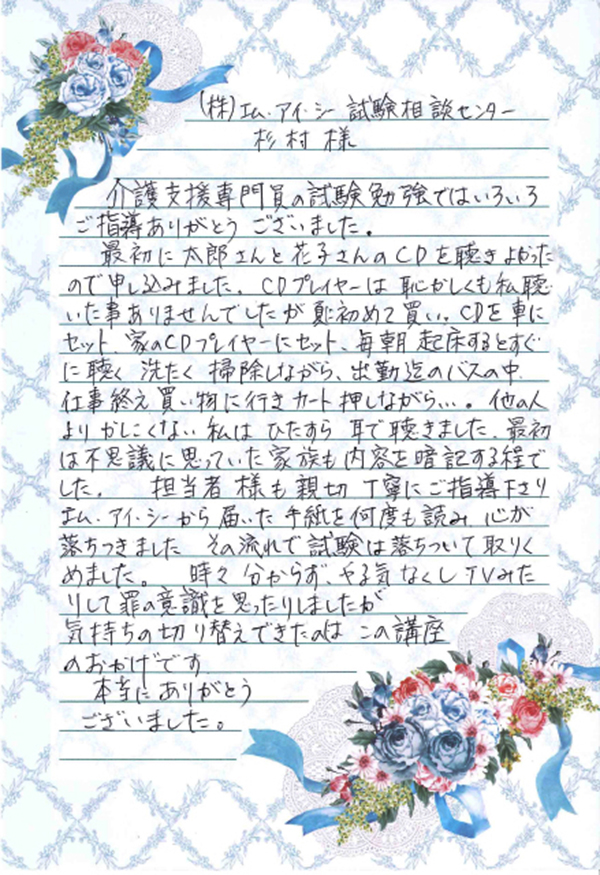 (株)エム・アイ・シー試験相談センター
杉村様
介護支援専門員の試験勉強ではいろいろ
ご指導ありがとうございました。
最初に太郎さんと花子さんのCDを聴きよかった
ので申し込みました。CDプレイヤーは恥かしくも私聴
いた事ありませんでしたが 初めて買い、CDを車に
セット、家のCDプレイヤーにセット、毎朝起床するとすぐ
に聴く 洗たく 掃除しながら、出勤迄のバスの中
仕事終え買い物に行きカート押しながら…。他の人
よりかしこくない私はひたすら耳で聴きました、最初
は不思議に思っていた家族も内容を暗記する程で
した。 担当者様も親切丁寧にご指導下さり
エム・アイ・シーから届いた手紙を何度も読み 心が
落ちつきました その流れで試験は落ちついて取りく
めました。 時々分からず、やる気なくしTVみた
りして罪の意識を思ったりしましたが
気持ちの切り替えできたのはこの講座
のおかげです
本当にありがとう
ございました。